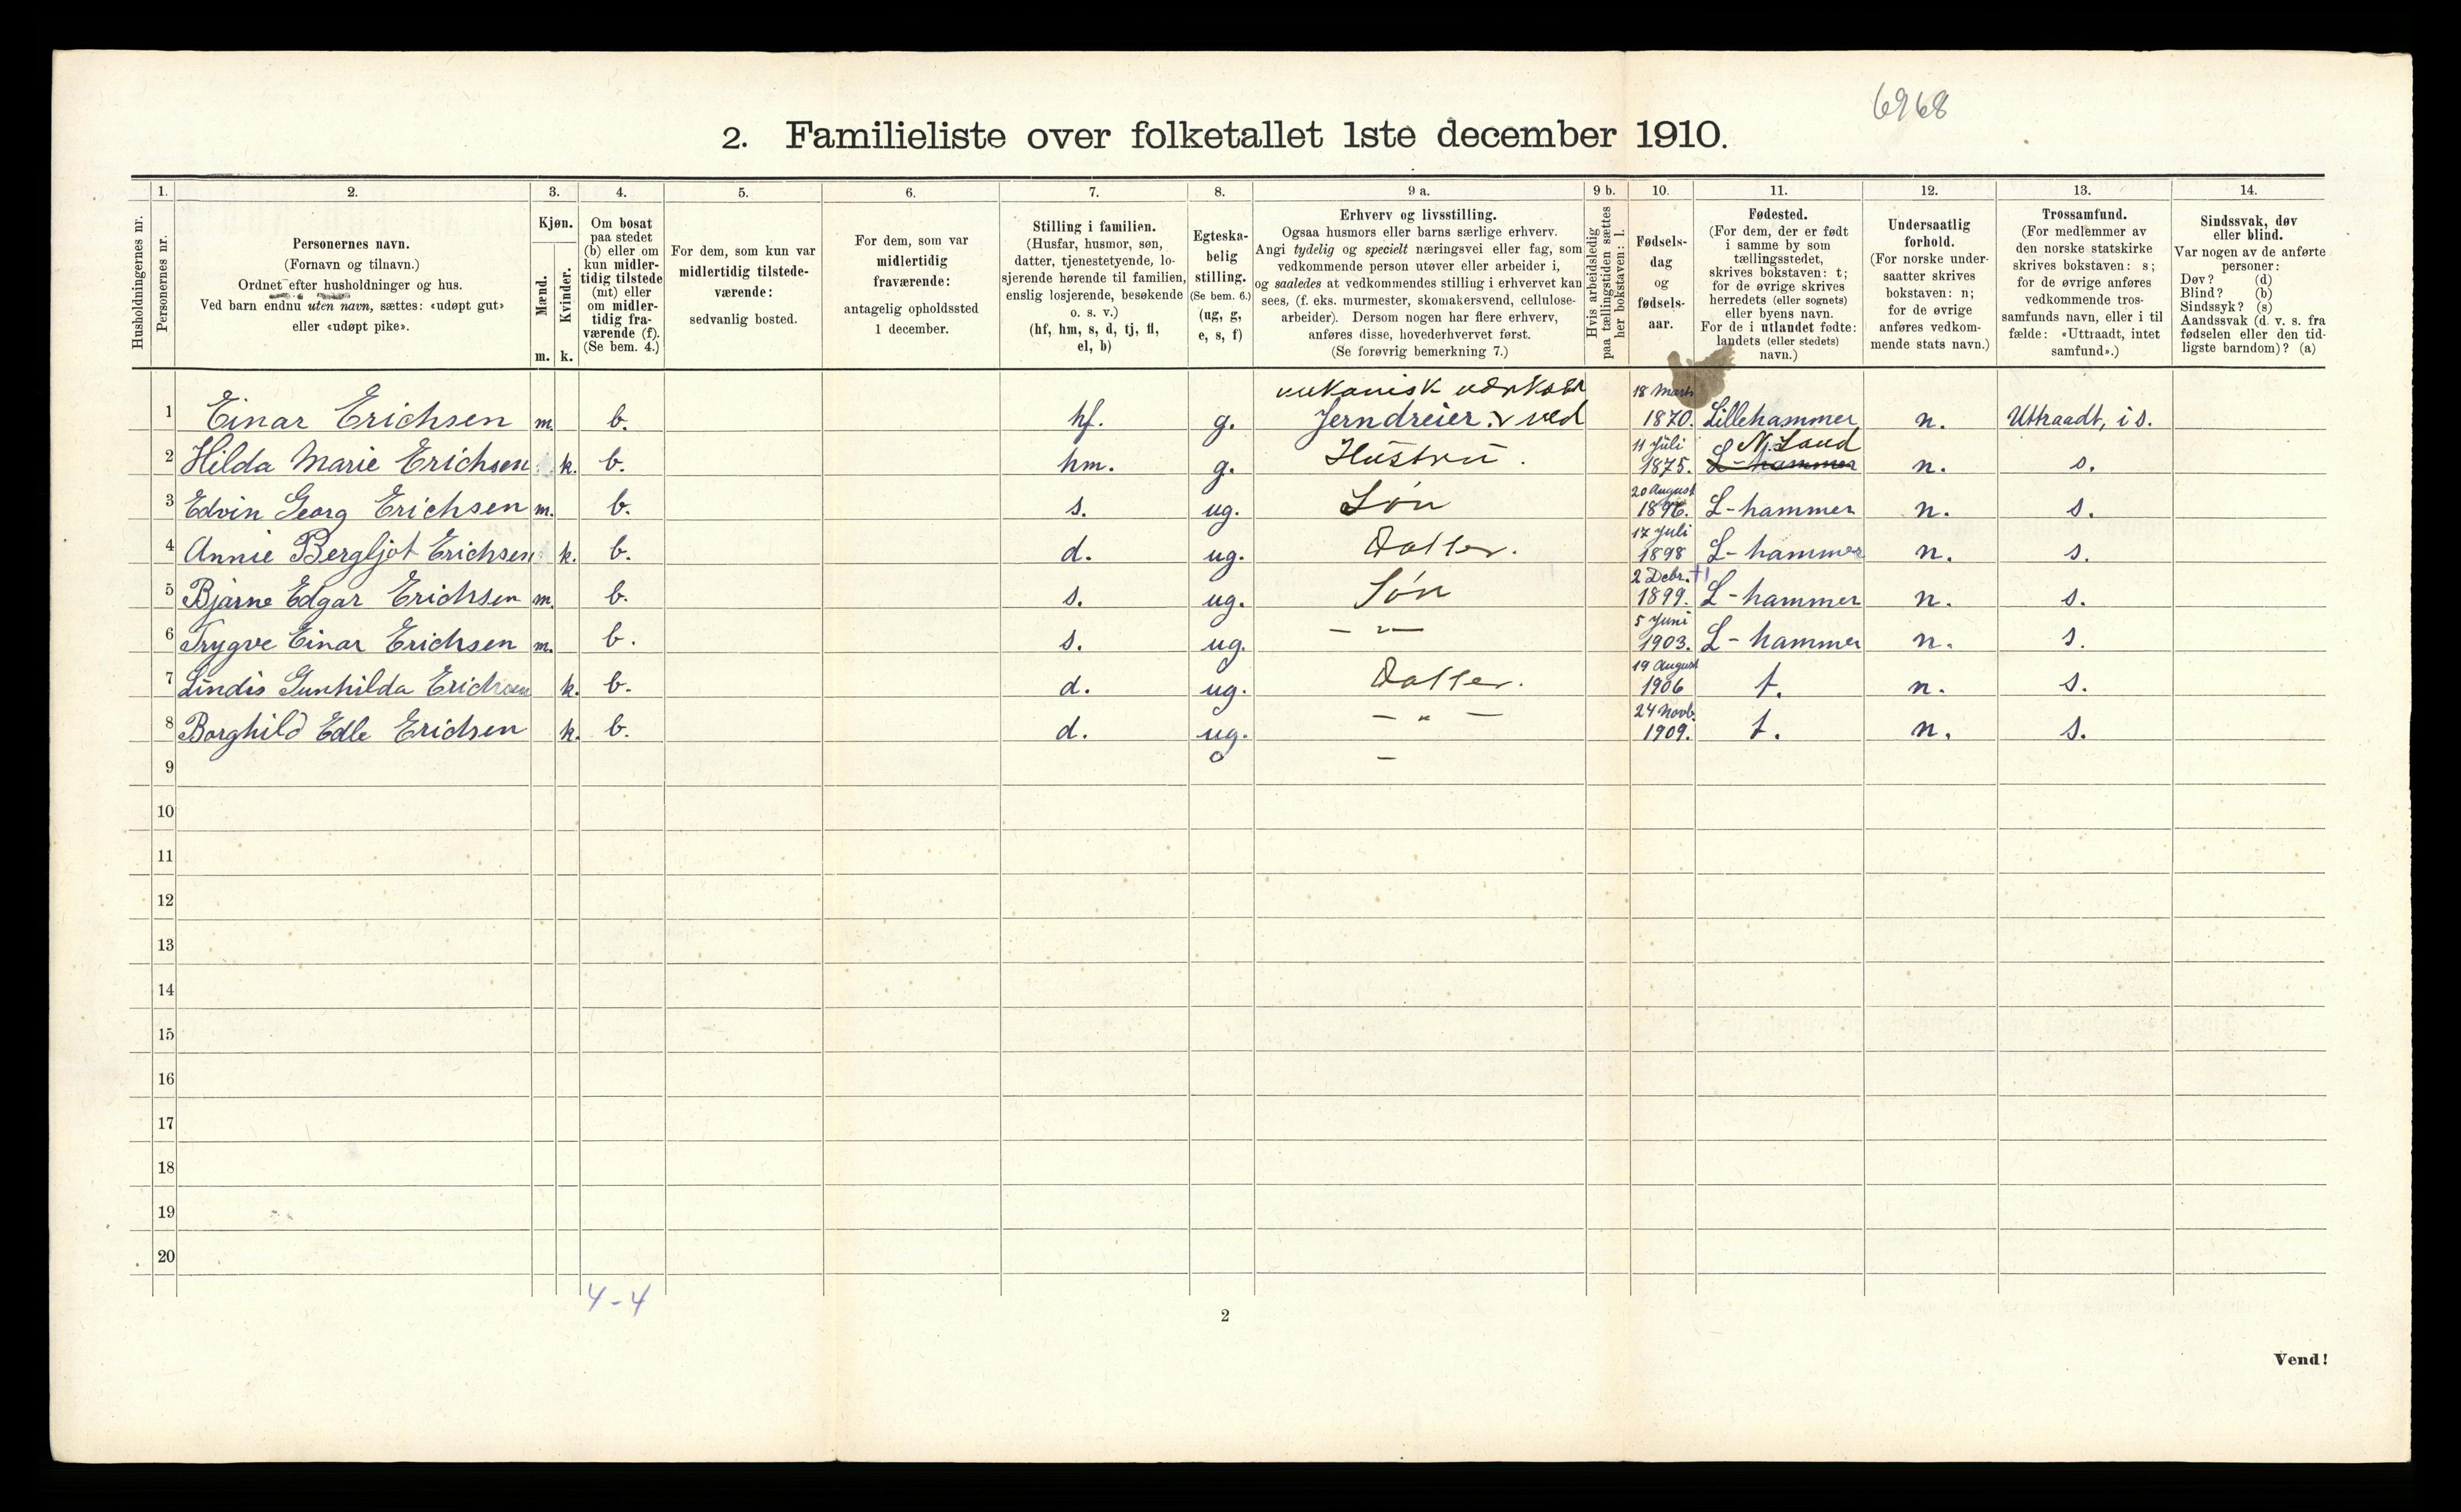 6968
2. Familieliste over folketallet 1ste december 1910.
Husholdningernes nr.
1.
Personernes nr.
2.
Personernes navn.
(Fornavn og tilnavn.)
Ordnet efter husholdninger og hus.
Ved barn endnu uten navn, sættes: «udøpt gut»
eller «udøpt pike».
3.
Kjøn.
Mænd.
Kvinder.
m. k.
4.
Om bosat
paa stedet
(b) eller om
kun midler-
tidig tilstede
(mt) eller
om midler-
tidig fra-
værende (f).
(Se bem. 4.)
5.
For dem, som kun var
midlertidig tilstede-
værende:
sedvanlig bosted.
6.
For dem, som var
midlertidig
fraværende:
antagelig opholdssted
1 december.
7.
Stilling i familien.
(Husfar, husmor, søn,
datter, tjenestetyende, lo-
sjerende hørende til familien,
enslig losjerende, besøkende
o. s. v.)
(hf, hm, s, d, tj, fl,
el, b)
8.
Egteska-
belig
stilling.
(Se bem. 6.)
(ug, g,
e, s, f)
9 a.
Erhverv og livsstilling.
Ogsaa husmors eller barns særlige erhverv.
Angi tydelig og specielt næringsvei eller fag, som
vedkommende person utøver eller arbeider i,
og saaledes at vedkommendes stilling i erhvervet kan
sees, (f. eks. murmester, skomakersvend, cellulose-
arbeider). Dersom nogen har flere erhverv,
anføres disse, hovederhvervet først.
(Se forøvrig bemerkning 7.)
9 b.
Hvis arbeidsledig
paa tællingstiden sættes
her bokstaven: l.
10.
Fødsels-
dag
og
fødsels-
aar.
11.
Fødested.
(For dem, der er født
i samme by som
tællingsstedet,
skrives bokstaven: t;
for de øvrige skrives
herredets (eller sognets)
eller byens navn.
For de i utlandet fødte:
landets (eller stedets)
navn.)
12.
Undersaatlig
forhold.
(For norske under-
saatter skrives
bokstaven: n;
for de øvrige
anføres vedkom-
mende stats navn.)
13.
Trossamfund.
(For medlemmer av
den norske statskirke
skrives bokstaven: s;
for de øvrige anføres
vedkommende tros-
samfunds navn, eller i til
fælde: «Uttraadt, intet
samfund».)
14.
Sindssvak, døv
eller blind.
Var nogen av de anførte
personer:
Døv? (d)
Blind? (b)
Sindssyk? (s)
Aandssvak (d. v. s. fra
fødselen eller den tid-
ligste barndom)? (a)
mekanisk værksted 18 Marts
1 Einar Erichsen m. b. hf. g. Jerndreier. v ved 1870. Lillehammer n. Uttraadt, i s.
11 Juli N. Land
2 Hilda Marie Erichsen k. b. hm. g. Hustru. 1875. L-hammer n. s.
20 August
3 Edvin Georg Erichsen m. b. s. ug. Søn 1896. L-hammer n. s.
17 Juli
4 Annie Bergljot Erichsen k. b. d. ug. Datter. 1898 L-hammer n. s.
2 Debr.
5 Bjarne Edgar Erichsen m. b. s. ug. Søn 1899. L-hammer n. s.
5 Juni
6 Trygve Einar Erichsen m. b. s. ug. — " — 1903. L-hammer n. s.
19 August
7 Lindis Gunhilda Erichsen k. b. d. ug. Datter. 1906 t. n. s.
24 Novb.
8 Borghild Edle Erichsen k. b. d. ug. — " — 1909. t. n. s.
9 —
10
11
12
13
14
15
16
17
18
19
20
4-4
2
Vend!